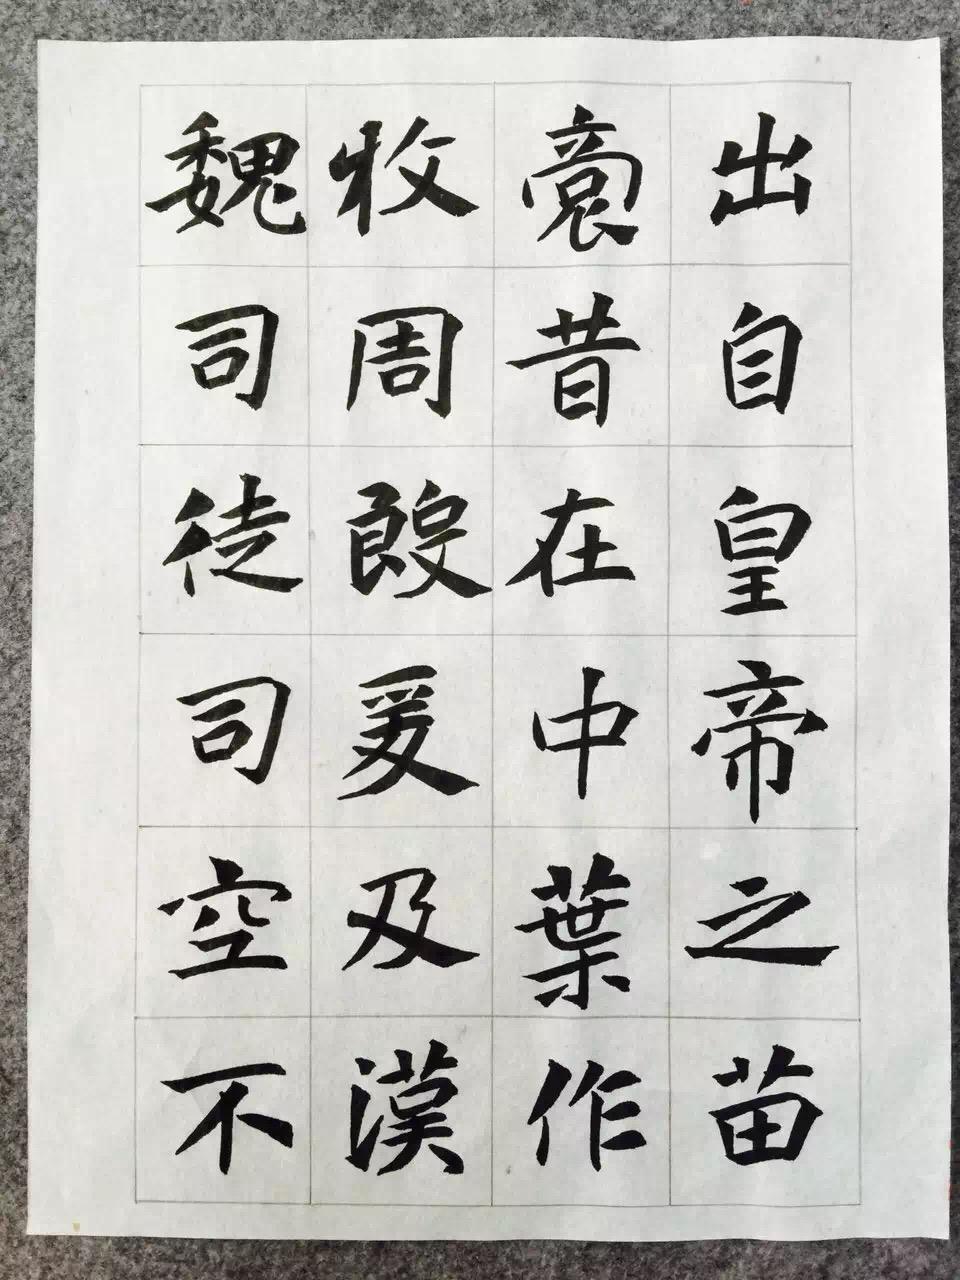 出自皇帝之苗
裔昔在中葉作
牧周殷爰及漢
魏司徒司空不